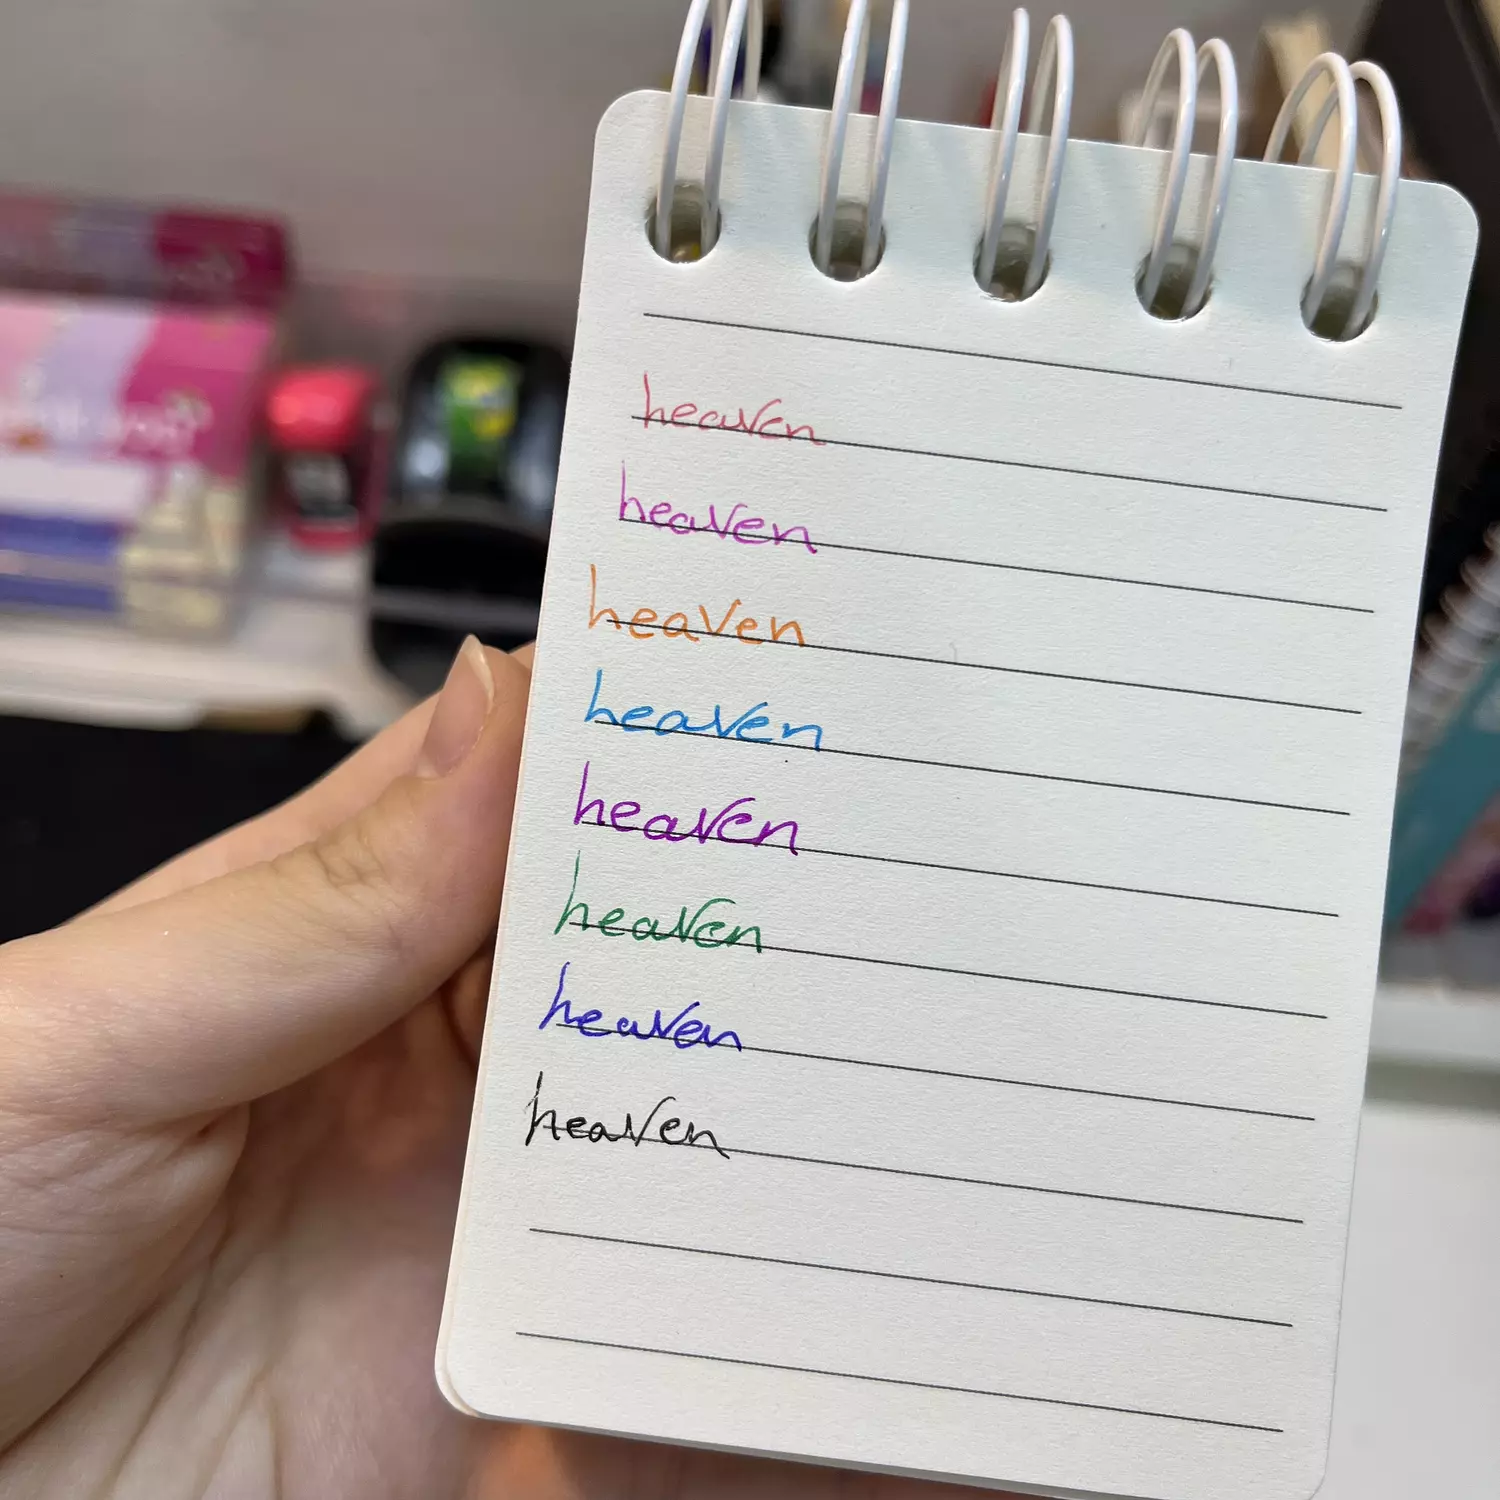 heaven
heaven
heaven
heaven
heaven
heaven
heaven
heaven